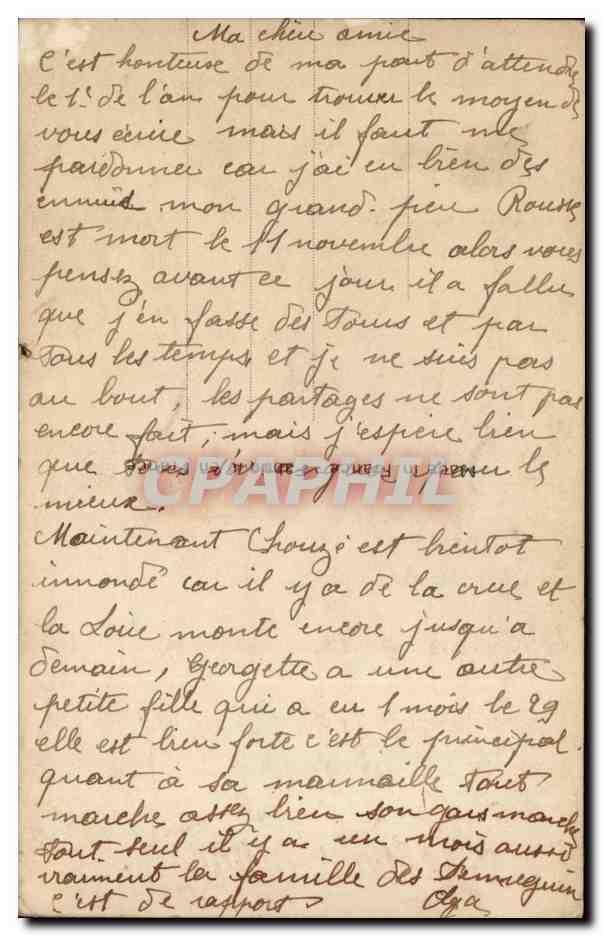 Ma chère amie
C'est honteuse de ma part d'attendre
le 1r de l'an pour trouver le moyen de
vous écrire mais il faut me
pardonner car j'ai eu bien des
ennuis mon grand-père
est mort le 11 novembre alors vous
pensez avant ce jour il a fallu
que j'en fasse des tours et par
tous les temps et je ne suis pas
au bout, les partages ne sont pas
encore fait, mais j'espère bien
que pour le
mieux.
CPAPHIL
Maintenant Chouzé est bientot
innondé car il y a de la crue et
la Loire monte encore jusqu'a
demain, Georgette a une autre
petite fille qui a eu 1 mois le 29
elle est bien forte c'est le principal.
quant à sa marmaille tout
marche assez bien son gars marche
tout seul il y a un mois aussi
vraiment la famille des
c'est de rapport Olga